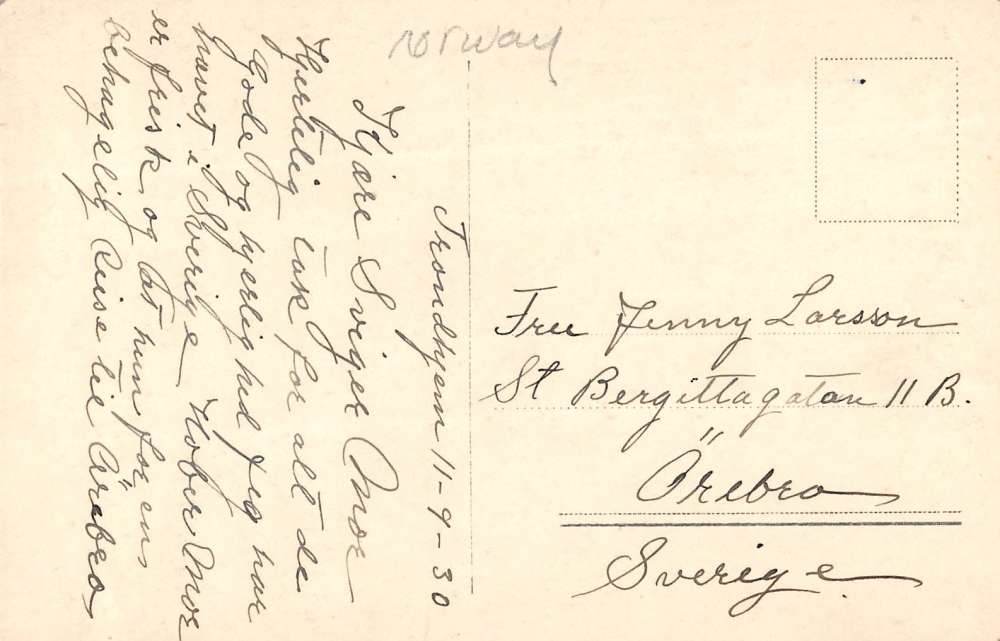 norway
Trondhjem 11-9-30
Kjære Sviger Mor
Hjertelig tak for alt de
Gode og hjerlighed jeg har
havet i Sverige Hober Mor
er frisk og at hun for en
behagelig Reise til Örebro
Fru Jenny Larsson
St Bergittagatan 11 B.
Örebro
Sverige